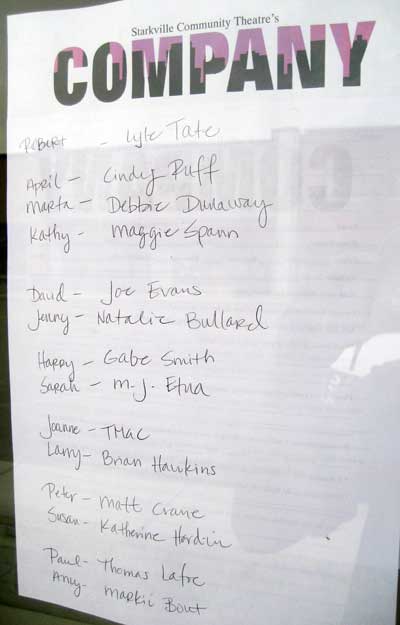 Starkville Community Theatre's
COMPANY
Robert - Lyle Tate
April - Cindy Ruff
Marta - Debbie Dunaway
Kathy - Maggie Spann
David - Joe Evans
Jenny - Natalie Bullard
Harry - Gabe Smith
Sarah - M.J. Etua
Joanne - TMac
Larry - Brian Hawkins
Peter - Matt Crane
Susan - Katherine Hardin
Paul - Thomas
Amy - Bout